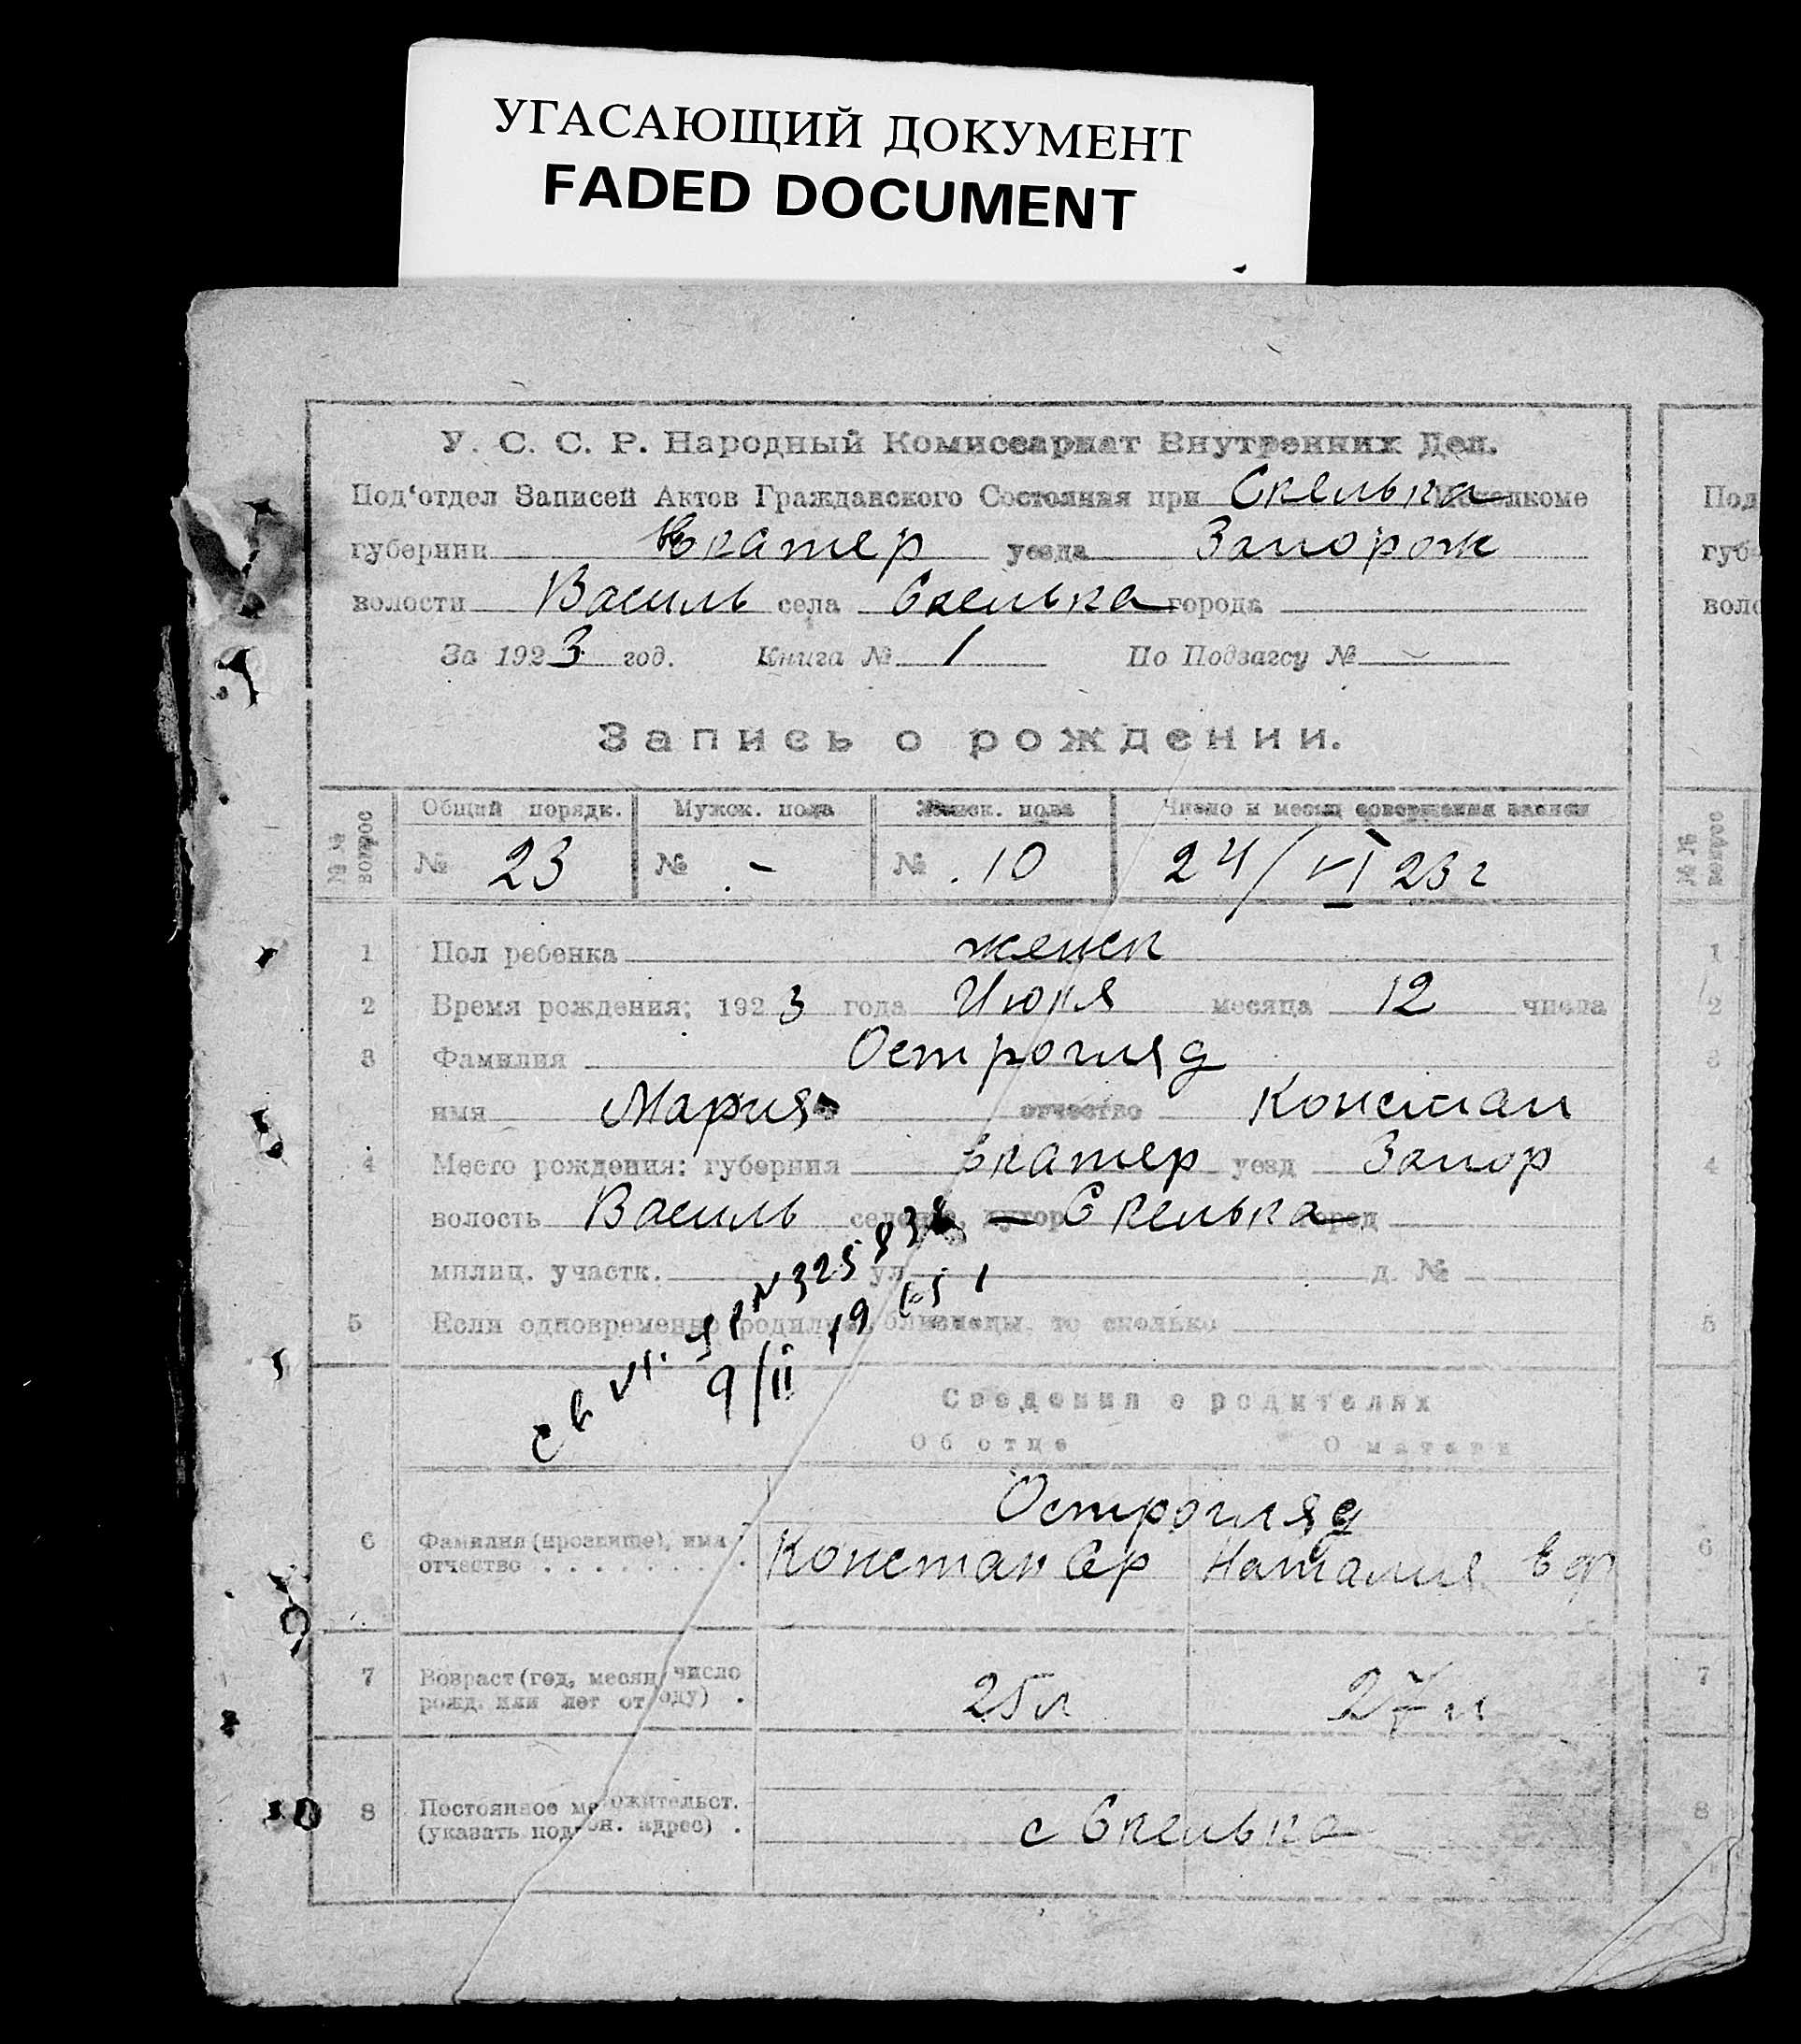 УГАСАЮЩИЙ ДОКУМЕНТ
FADED DOCUMENT
У. С. С. Р. Народный Комиссариат Внутренних Дел.
Под‘отдел Записей Актов Гражданского Состояния при Скелька Исполкоме
губернии Екатер уезда Запорож
волости Василь села Скелька города
За 1923 год. Книга № 1 По Подзагсу № -
Запись о рождении.
№№ вопрос
Общий порядк. Мужск. пола Женск. пола Число и месяц совершения записи
№ 23 № - № 10 24/VI 23 г
1 Пол ребенка женск
2 Время рождения: 1923 года месяца 12 числа
3 Фамилия Остргляд
имя Мария отчество Констан
4 Место рождения: губерния Екатер уезд Запор
волость Василь селение, хутор - Скелька город
милиц. участк. ул д. №
5 Если одновременно родились близнецы, то сколько
№ 325838
9/II 1951
Сведения о родителях
Об отце О матери
Остргляд
6 Фамилия (прозвище), имя
отчество . . . . . . . Констан Сер Наталия Еф
7 Возраст (год, месяц число
рожд. или лет от роду) . 25 л 27 л
8 Постоянное местожительст.
(указать подрон. адрес) . с Скелька
Под
губе
воло
№№ вопрос
1
2
3
4
5
6
7
8